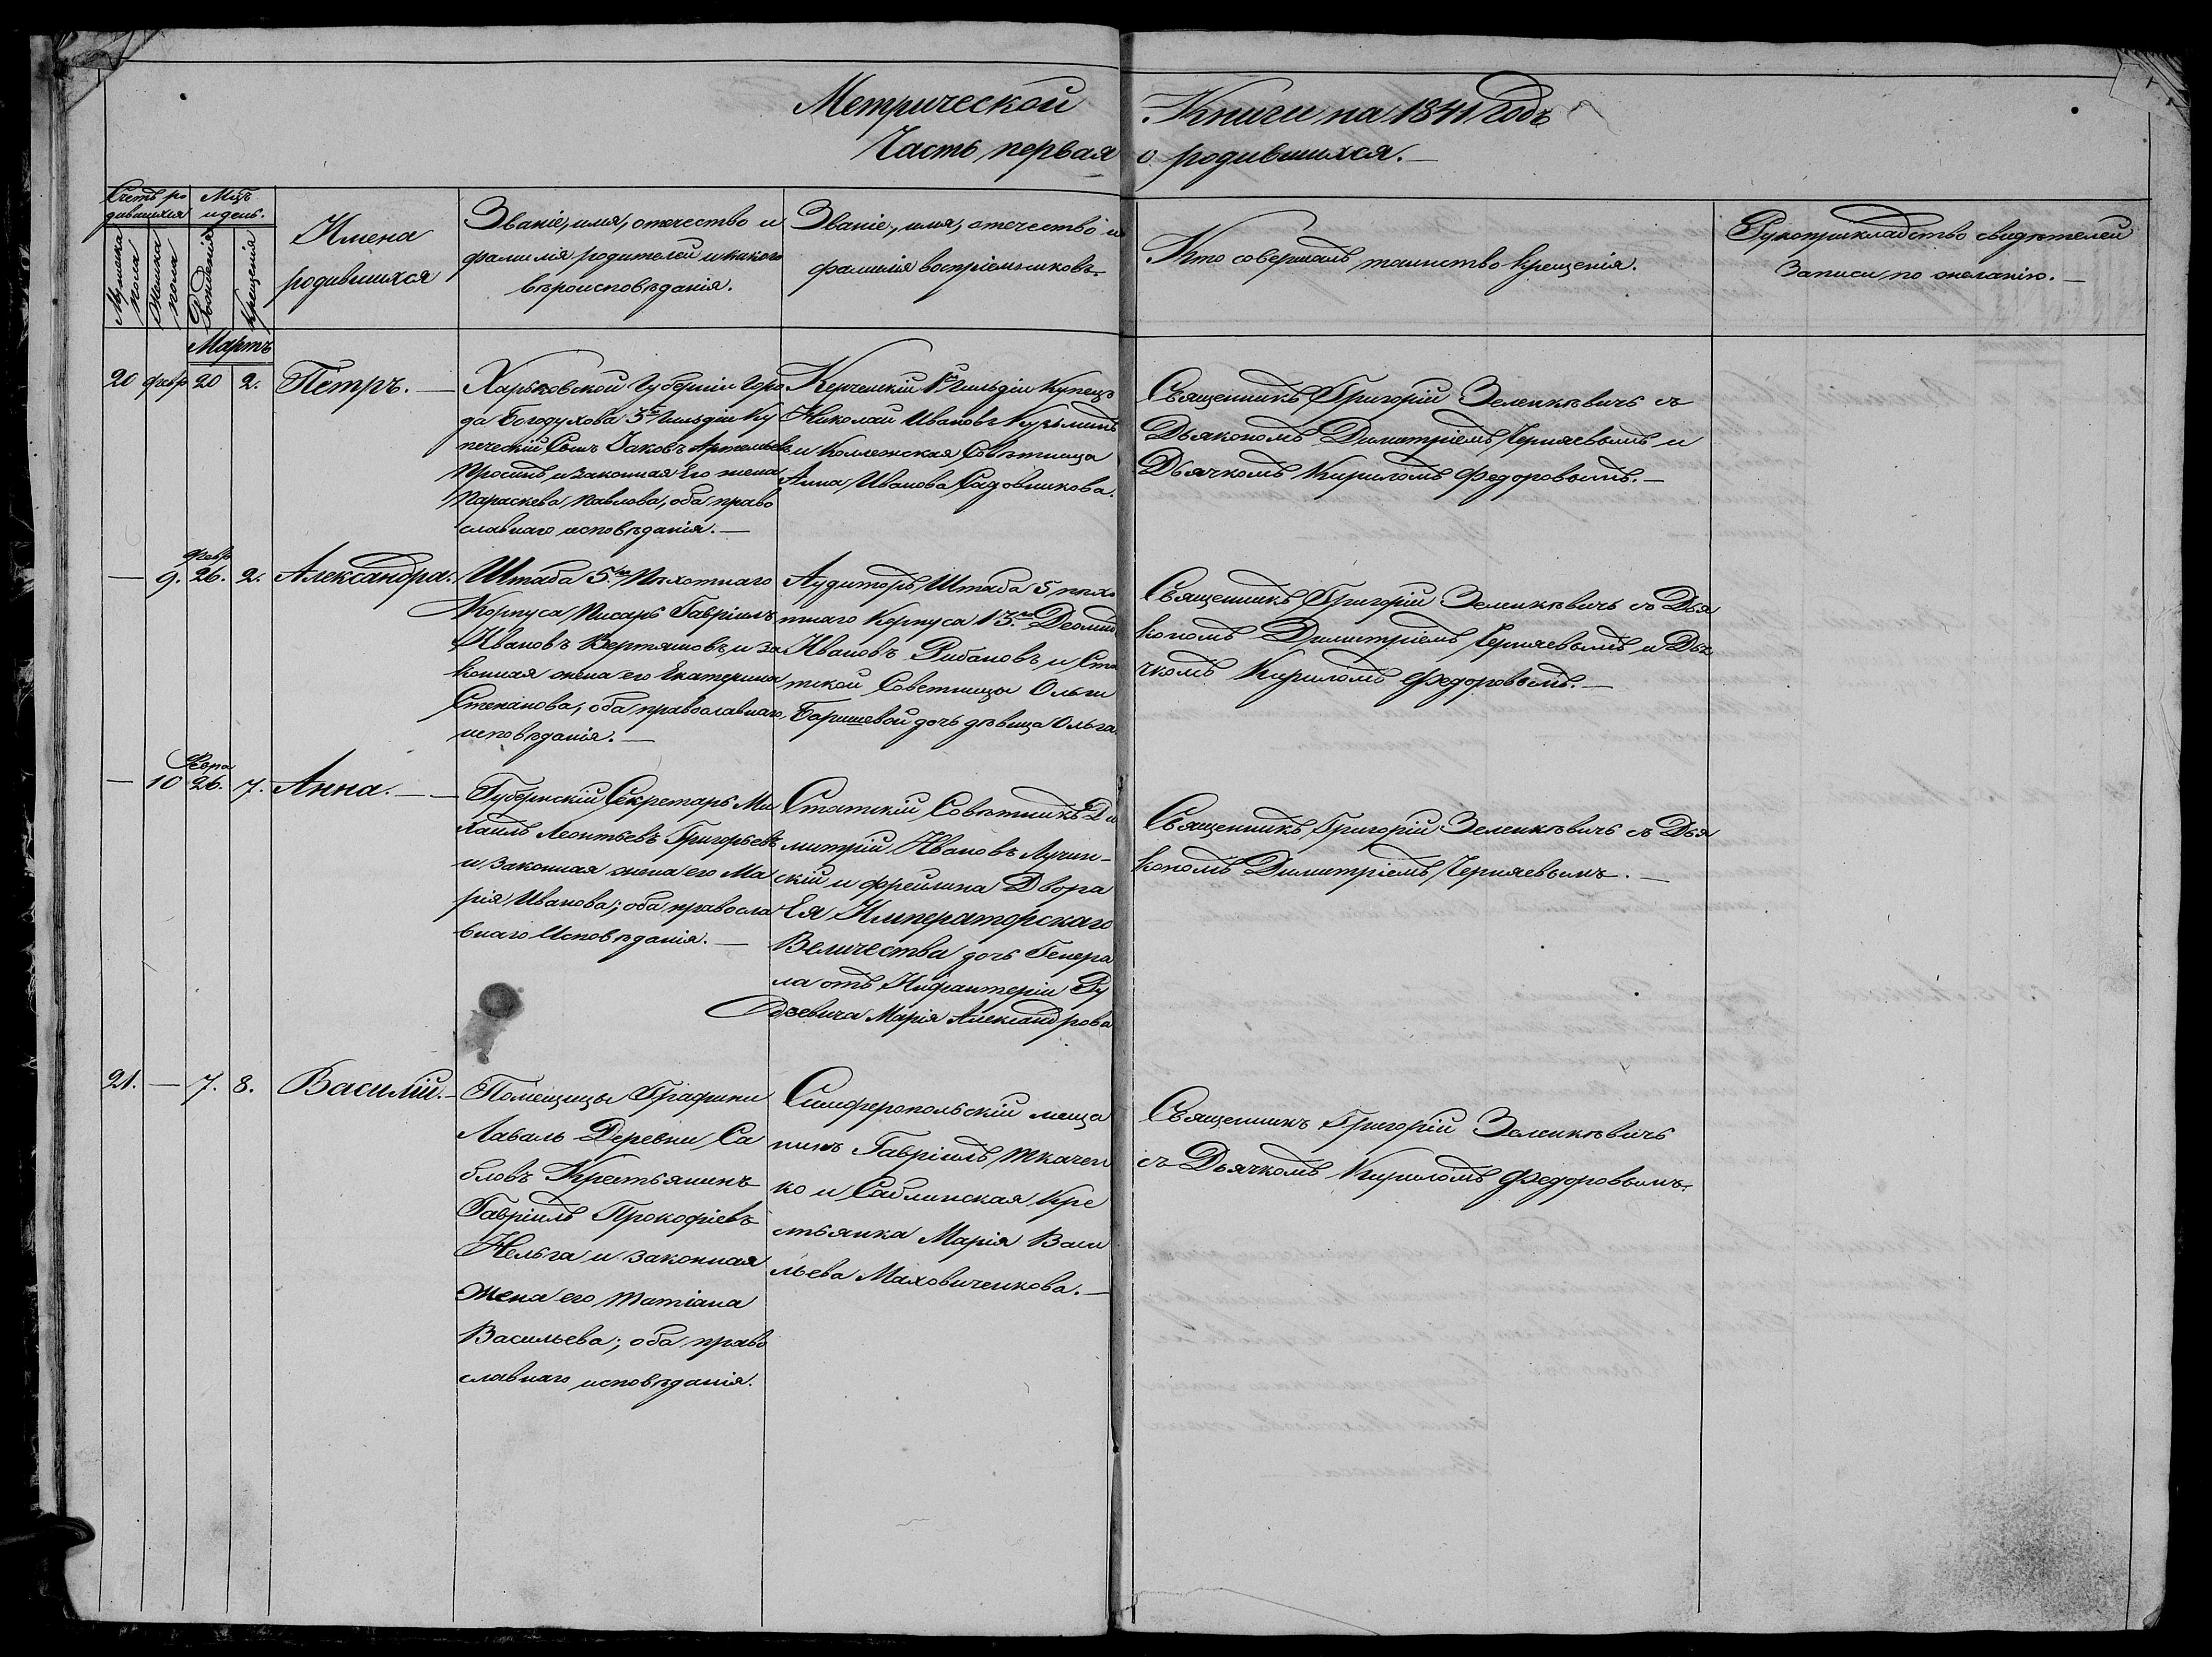 Метрической Книги на 1841 Годъ
Часть первая о родившихся.
Счетъ ро
дившихся
Мцъ
и день.
Мужеска
пола
Женска
пола
Рожденія
Крещенія
Имена
родившихся
Званіе, имя, отечество и
фамилія родителей и какого
вѣроисповѣданія.
Званіе, имя, отечество и
фамилія воспріемниковъ.
Кто совершалъ таинство крещенія.
Рукоприкладство свидѣтелей
Записи, по желанію.
Мартъ
20 февр 20 2. Петръ.
Харьковской Губерніи горо
да Богодухова 3й Гильдіи Ку
печескій Сынъ Іаковъ Артемьевъ
и законная Его жена
Параскева Павлова, оба право
славнаго исповѣданія.
Керченскій Гильдіи Купецъ
Николай Ивановъ Кузьминъ
и Коллежская Совѣтница
Анна Иванова Садовникова.
Священникъ Григорій Зеленкѣвичъ съ
Дьякономъ Димитріемъ Черняевымъ и
Дьячкомъ Кириломъ Федоровымъ.
февр
9. 26. 2. Александра.
Штаба 5го Пѣхотнаго
Корпуса Писарь Гавріилъ
Ивановъ и за
конная жена его Екатерина
Степанова, оба православнаго
исповѣданія.
Аудиторъ Штаба 5 пѣхо
тнаго Корпуса 13.
Ивановъ Рибановъ и Ста
тской Советницы Ольги
Баришевой дочь дѣвица Ольга.
Священникъ Григорій Зеленкѣвичъ съ Дья
кономъ Димитріемъ Черняевымъ и Дья
чкомъ Кириломъ Федоровымъ.
Февра
10 26. 7. Анна.
Губернскій Секретарь Ми
хаилъ Леонтьевъ Григорьевъ
и законная жена его Ма
рія Иванова; оба правосла
внаго Исповѣданія.
Статскій Совѣтникъ Ди
митрій Ивановъ Лучин-
скій и фрейлина Двора
Ея Императорскаго
Величества дочь Генера
ла отъ Инфантеріи Ру
дзевича Марія Александрова
Священникъ Григорій Зеленкѣвичъ съ Дья
кономъ Димитріемъ Черняевымъ.
21. 7. 8. Василій.
Помещицы Графини
Лаваль Деревни Са
бловъ Крестьянинъ
Гавріилъ Прокофіевъ
Кельга и законная
жена его Татіана
Васильева; оба право
славнаго исповѣданія.
Симферопольскій меща
нинъ Гавріилъ Ткачен
ко и Саблинская Кре
стьянка Марія Васи
льева Маховиченкова.
Священникъ Григорій Зеленкѣвичъ
съ Дьячкомъ Кириломъ Федоровымъ.